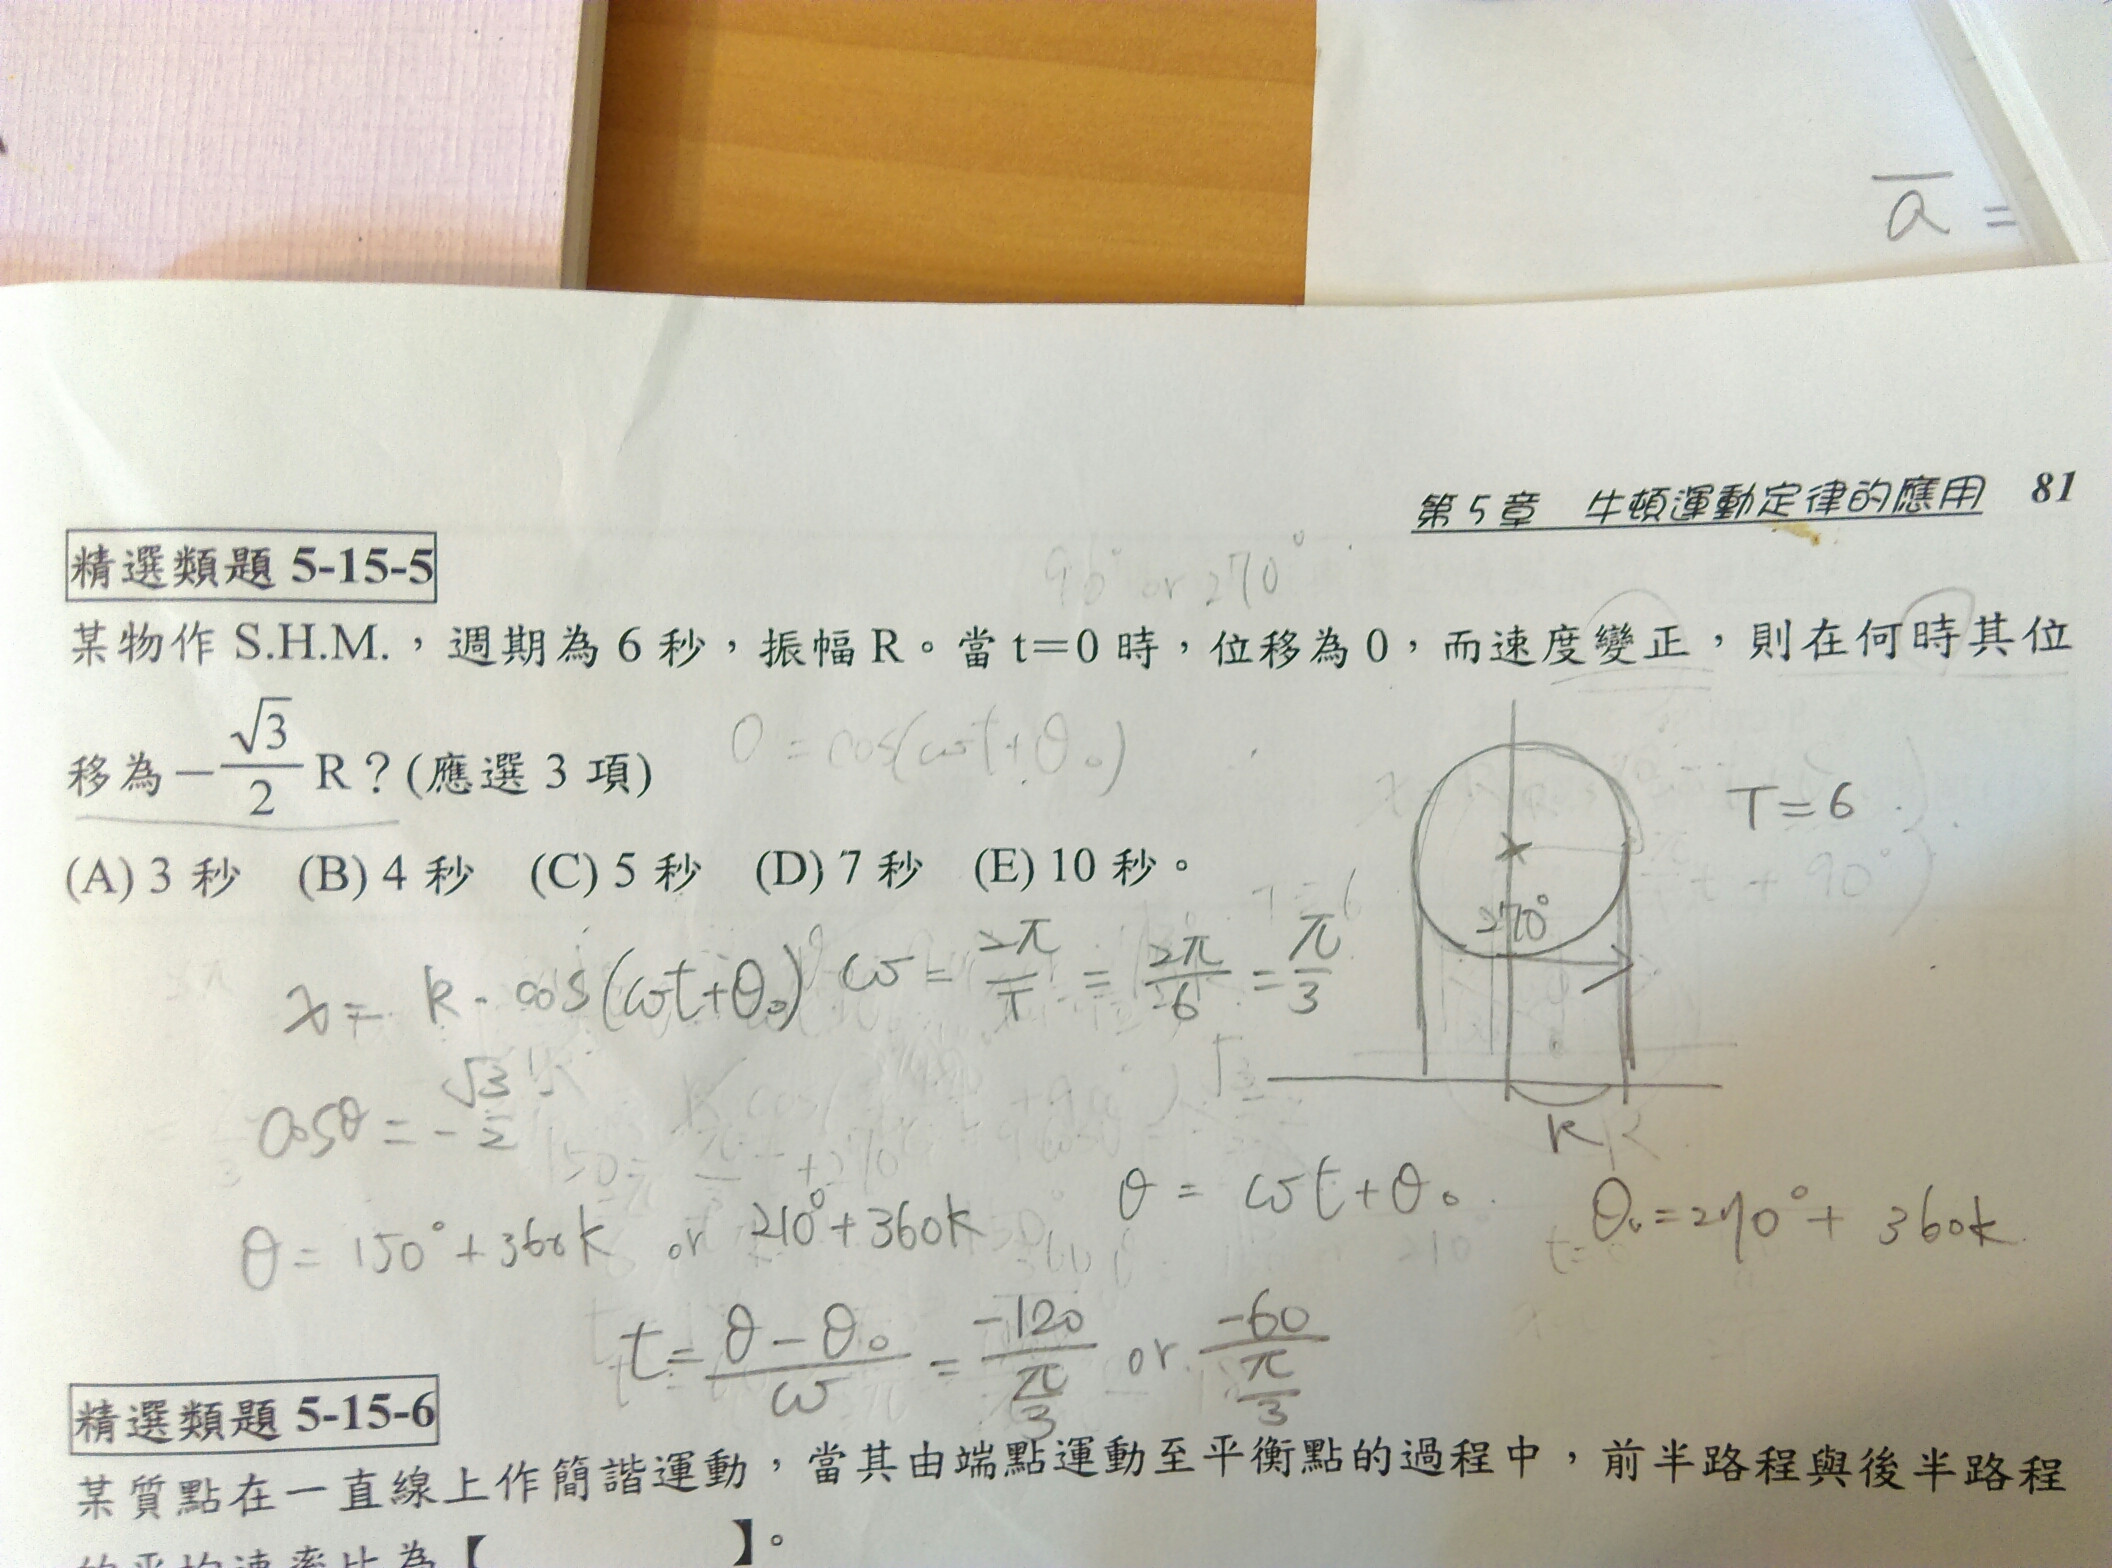 a̅ =
第5章 牛頓運動定律的應用 81
精選類題 5-15-5
90° or 270°
某物作 S.H.M.，週期為 6 秒，振幅 R。當 t＝0 時，位移為 0，而速度變正，則在何時其位
移為－√3/2 R？(應選 3 項)
0 = cos(ωt+θ₀)
T=6
(A) 3 秒 (B) 4 秒 (C) 5 秒 (D) 7 秒 (E) 10 秒。
270°
x = R · cos(ωt+θ₀) ω = 2π/T = 2π/6 = π/3
R
cosθ = -√3/2
θ = 150°+360k or 210°+360k θ = ωt+θ₀ θ₀=270°+ 360k
t = (θ-θ₀)/ω = -120/(π/3) or -60/(π/3)
精選類題 5-15-6
某質點在一直線上作簡諧運動，當其由端點運動至平衡點的過程中，前半路程與後半路程
的平均速率比為【 】。